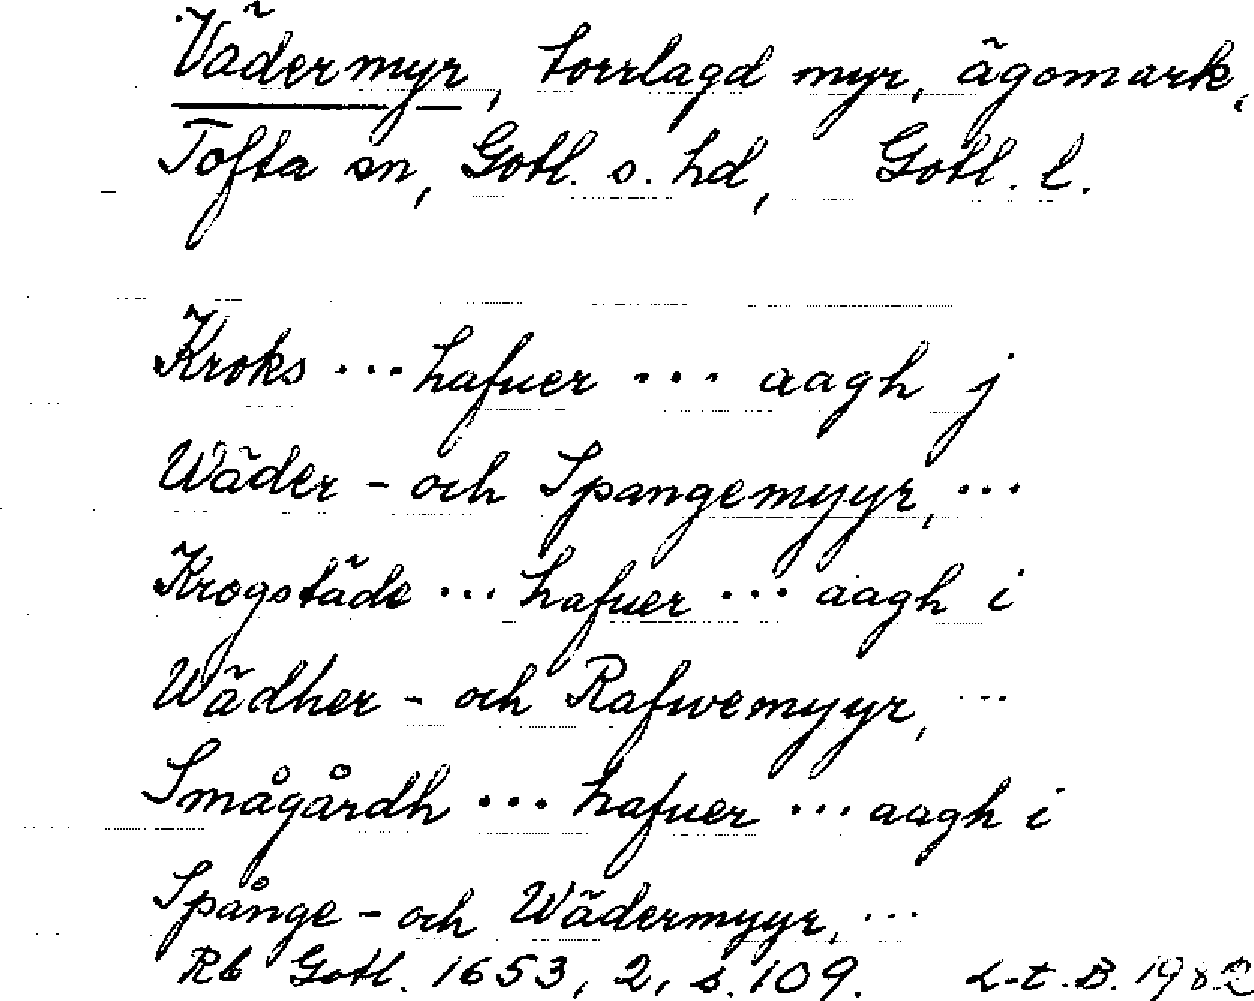 Vädermyr, torrlagd myr, ägomark,
Tofta sn, Gotl. s. hd, Gotl. l.
Kroks ... hafuer ... aagh j
Wäder- och Spangemyyr, ...
Krogstäde ... hafuer ... aagh i
Wädher- och Rafwemyyr, ...
Smågårdh ... hafuer ... aagh i
Spånge- och Wädermyyr, ...
Rb Gotl. 1653, 2, s. 109. L-t. B. 1982